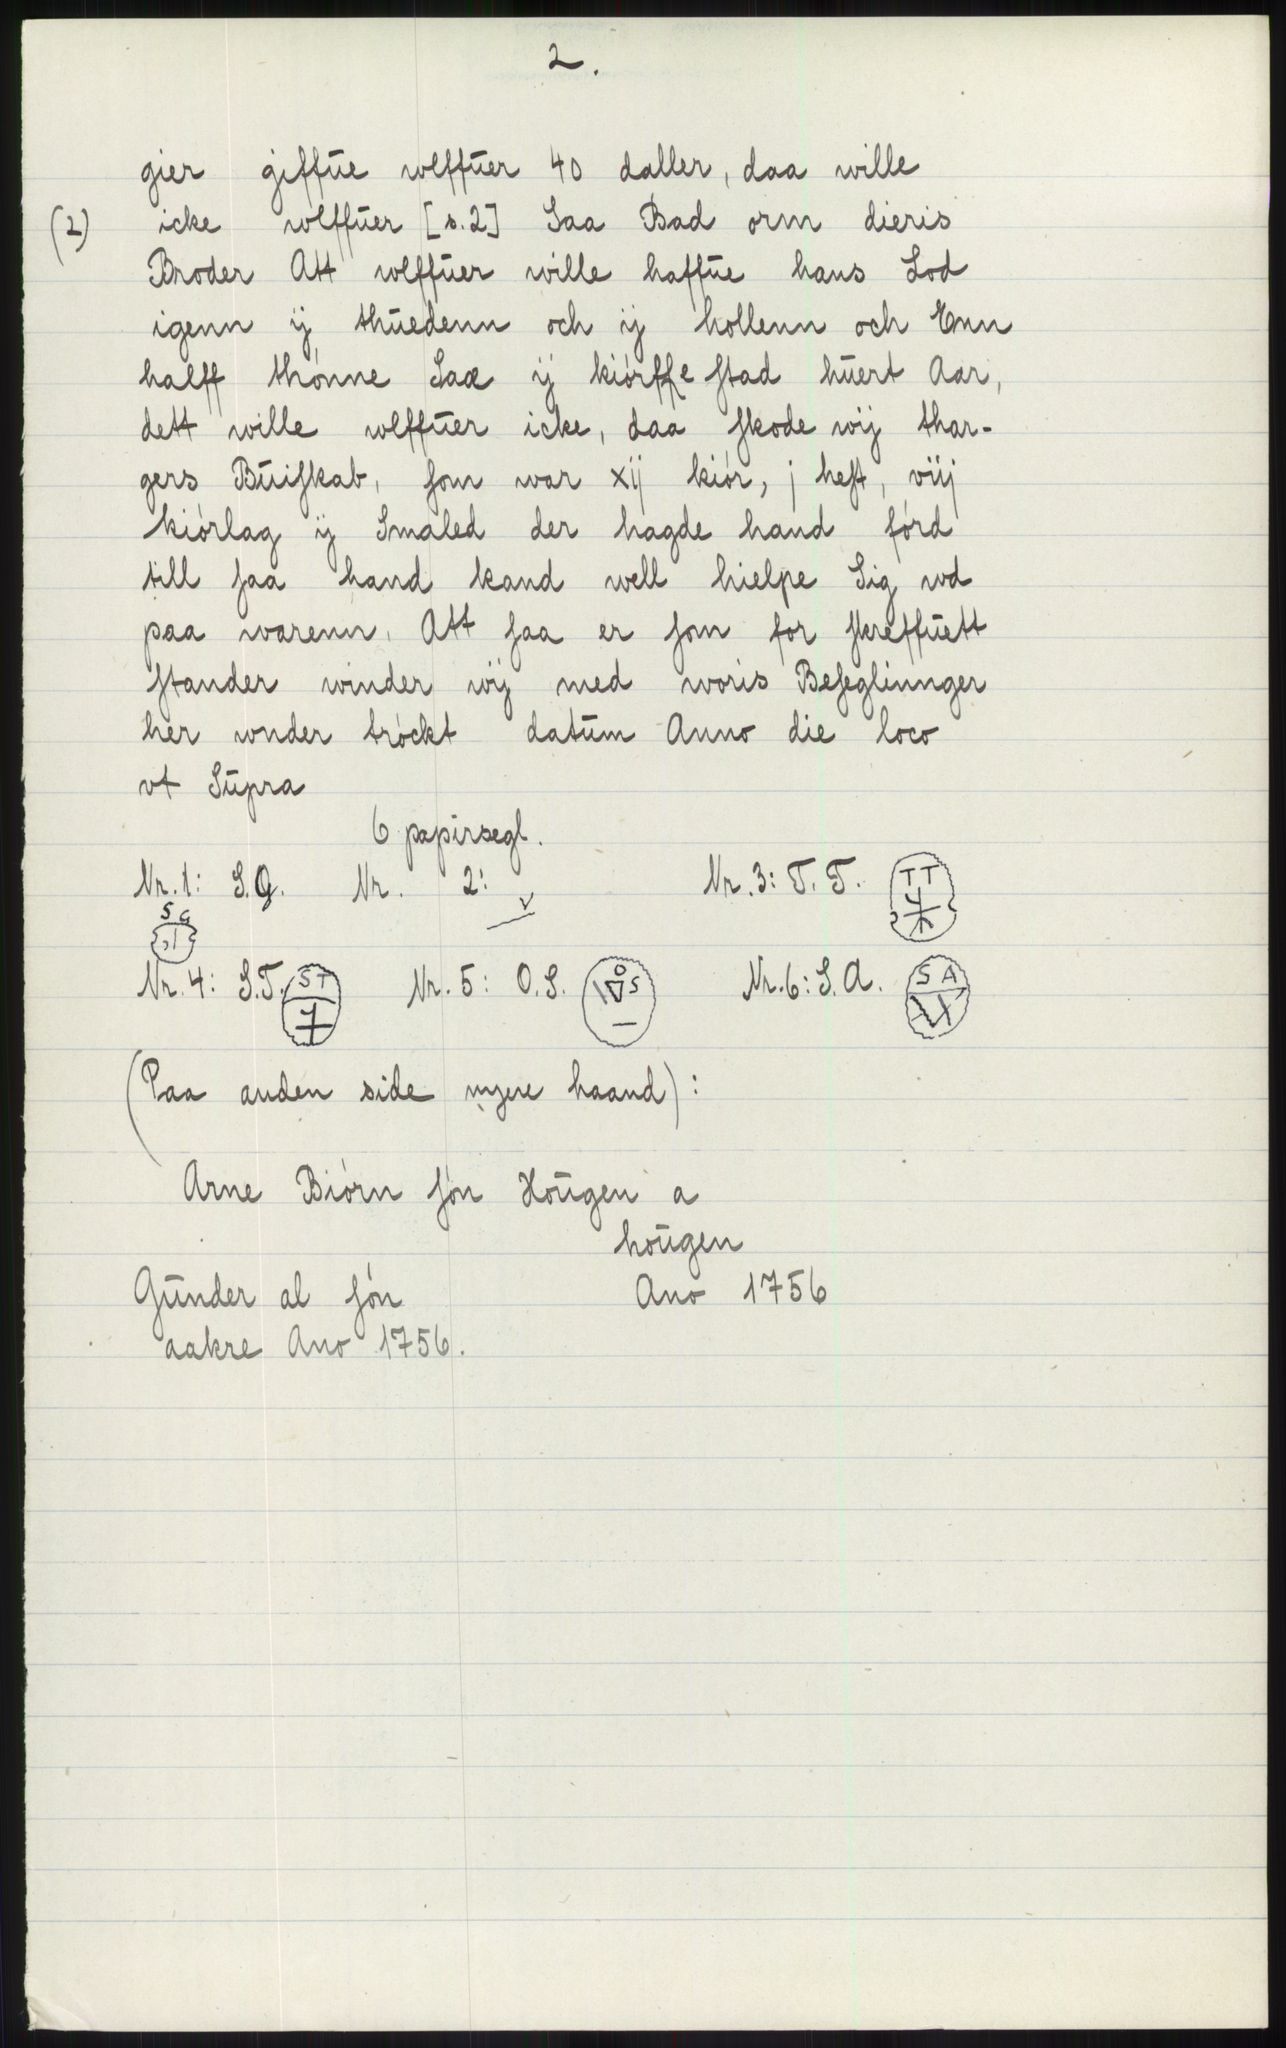 2.
gier giffue wlffuer 40 daller, daa wille
(2) icke wlffuer [s. 2] Saa Bad orm dieris
Broder Att wlffuer wille haffue hans Lod
igenn ij thuedenn och ij hollenn och Enn
halff thónne Sae ij kiórffe stad huert Aar,
dett wille wlffuer icke, daa skode wij thar-
gers Buiskab, som war xij kiór, j hest, viij
kiórlag ij Smaled der hagde hand fórd
till saa hand kand well hielpe Sig wd
paa warenn. Att saa er som for skreffuett
stander winder wij med woris Beseglinnger
her wnder tróckt datum Anno die loco
vt Supra
6 papirsegl.
Nr. 1: S.G. Nr. 2: Nr. 3: T. T. TT
SG
Nr. 4: S.T. ST Nr. 5: O.S. OS Nr. 6: S. A. SA
(Paa anden side nyere haand):
Arne Biórn són Hougen a
hougen
Gunder al són Ano 1756
aakre Ano 1756.